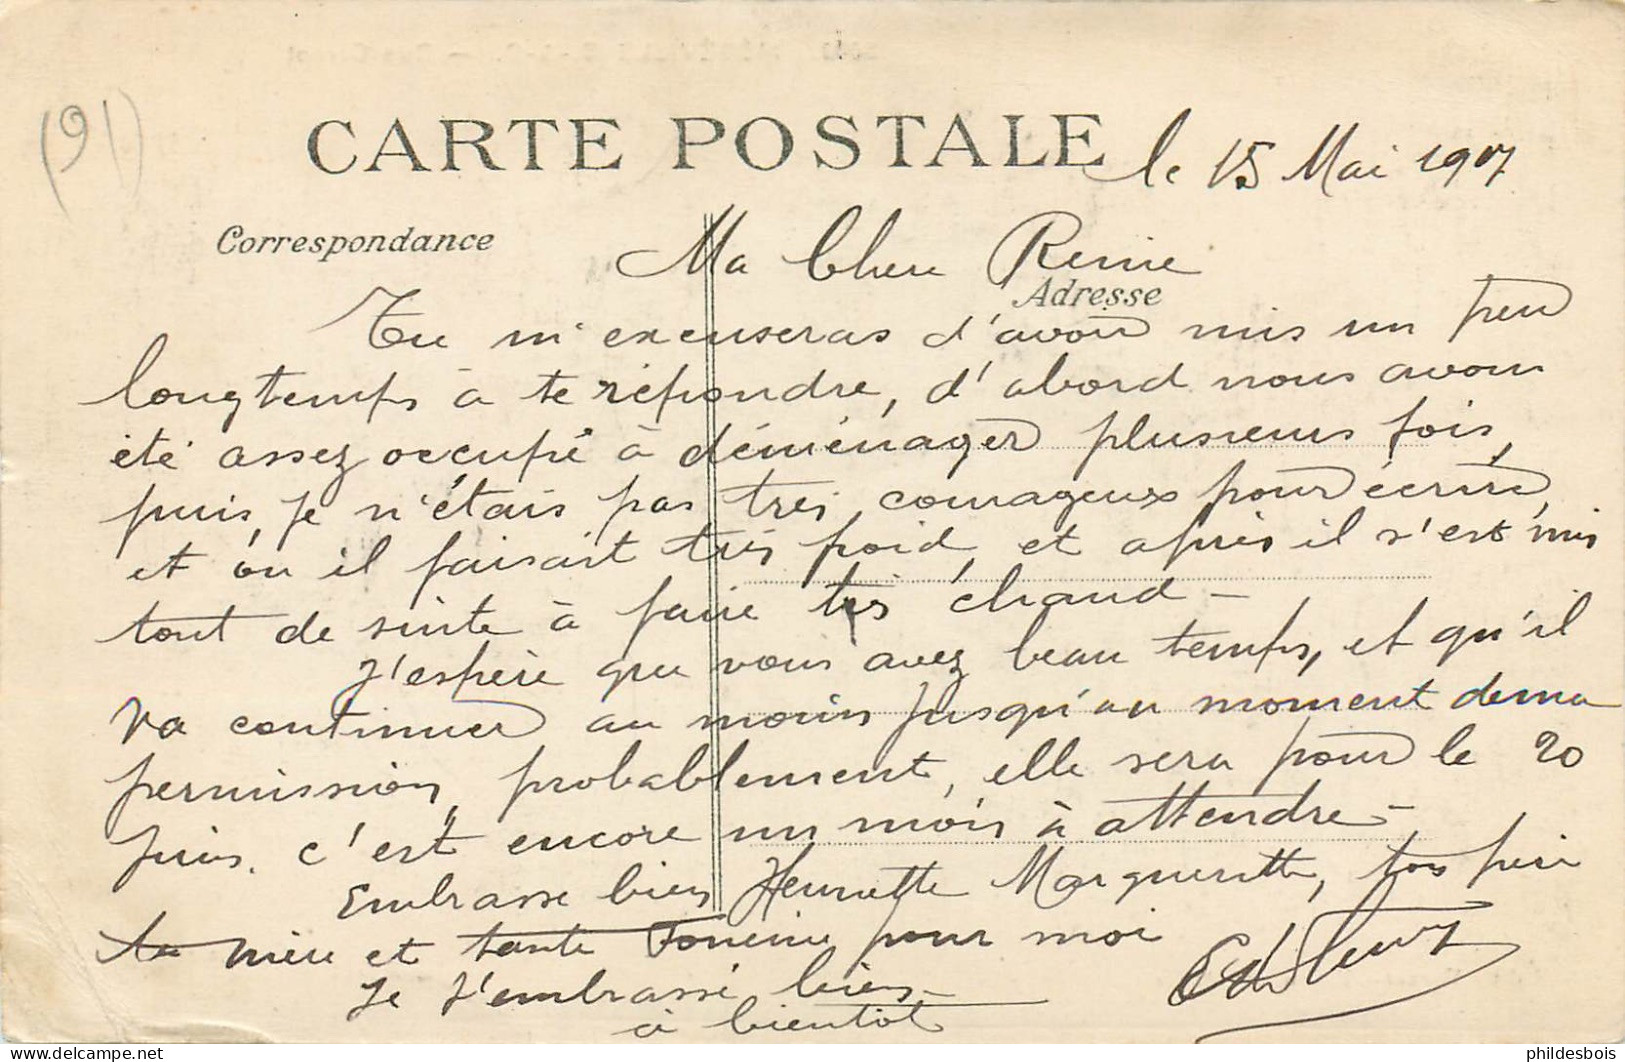 (91)
CARTE POSTALE
le 15 Mai 1907
Correspondance
Ma Chere Reine
Adresse
Tu m'excuseras d'avoir mis un peu
longtemps à te répondre, d'abord nous avons
été assez occupé à déménager plusieurs fois,
puis, je n'étais pas très courageux pour écrire,
et ou il faisait très froid, et après il s'est mis
tout de suite à faire très chaud -
J'espère que vous avez beau temps, et qu'il
va continuer au moins jusqu'au moment de ma
permission, probablement, elle sera pour le 20
juin. c'est encore un mois à attendre -
Embrasse bien Henriette Marguerite, ton père
ta mère et tante pour moi
Je t'embrasse bien -
à bientôt
phildesbois